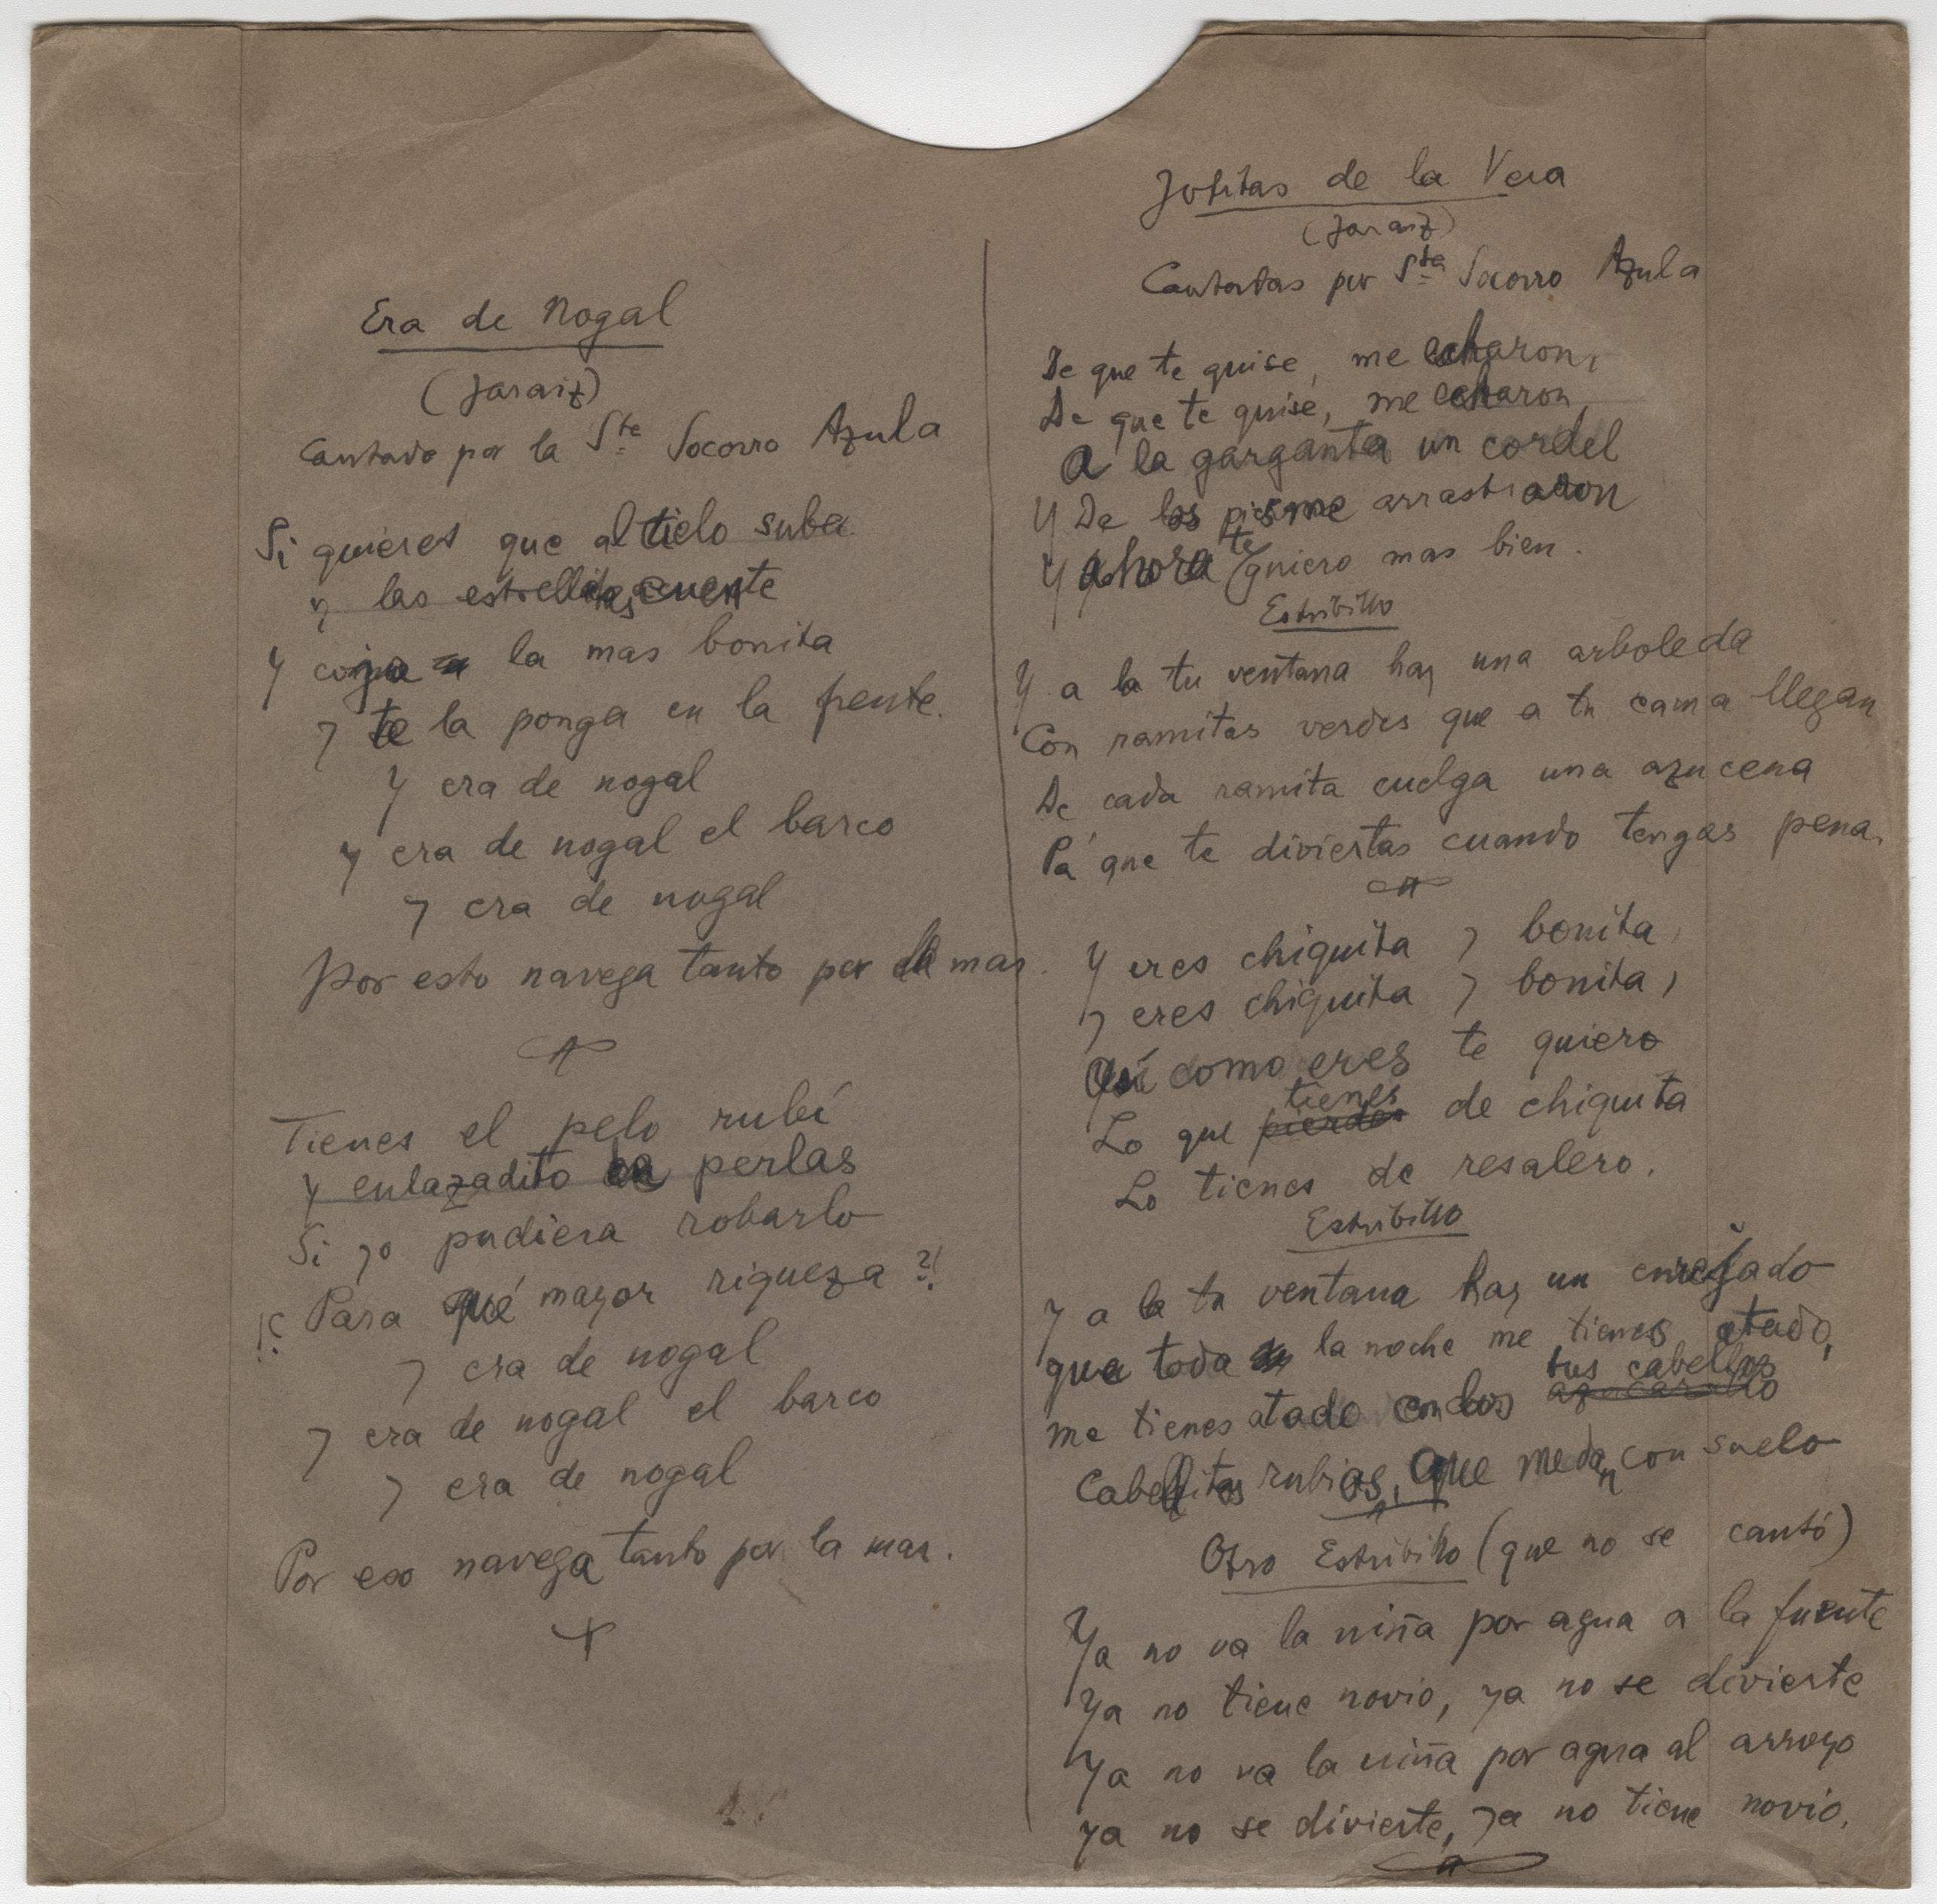 Era de Nogal
(Jaraiz)
Cantado por la Sta Socorro Azula
Si quieres que al cielo suba
y las estrellitas cuente
Y coja la mas bonita
y te la ponga en la frente.
Y era de nogal
y era de nogal el barco
y era de nogal
Por esto navega tanto por la mar.
Tienes el pelo rubí
y enlazadito en perlas
Si yo pudiera robarlo
!¿ Para qué mayor riqueza ?!
y era de nogal
y era de nogal el barco
y era de nogal
Por eso navega tanto por la mar.
Jotitas de la Vera
(Jaraiz)
Cantadas por Sta Socorro Azula
De que te quise, me echaron,
De que te quise, me echaron,
A la garganta un cordel
Y De los pies me arrastraron
Y ahora te quiero mas bien.
Estribillo
Y a la tu ventana hay una arboleda
Con ramitas verdes que a tu cama llegan
De cada ramita cuelga una azucena
Pa' que te diviertas cuando tengas pena.
Y eres chiquita y bonita,
y eres chiquita y bonita,
Así como eres te quiero
tienes
Lo que pierdes de chiquita
Lo tienes de resalero.
Estribillo
y a la tu ventana hay un enrejado
que toda la noche me tienes atado,
tus cabellos
me tienes atado con los
Cabellitos rubios, que me dan consuelo
Otro Estribillo (que no se cantó)
Ya no va la niña por agua a la fuente
Ya no tiene novio, ya no se divierte
Ya no va la niña por agua al arroyo
ya no se divierte, ya no tiene novio.